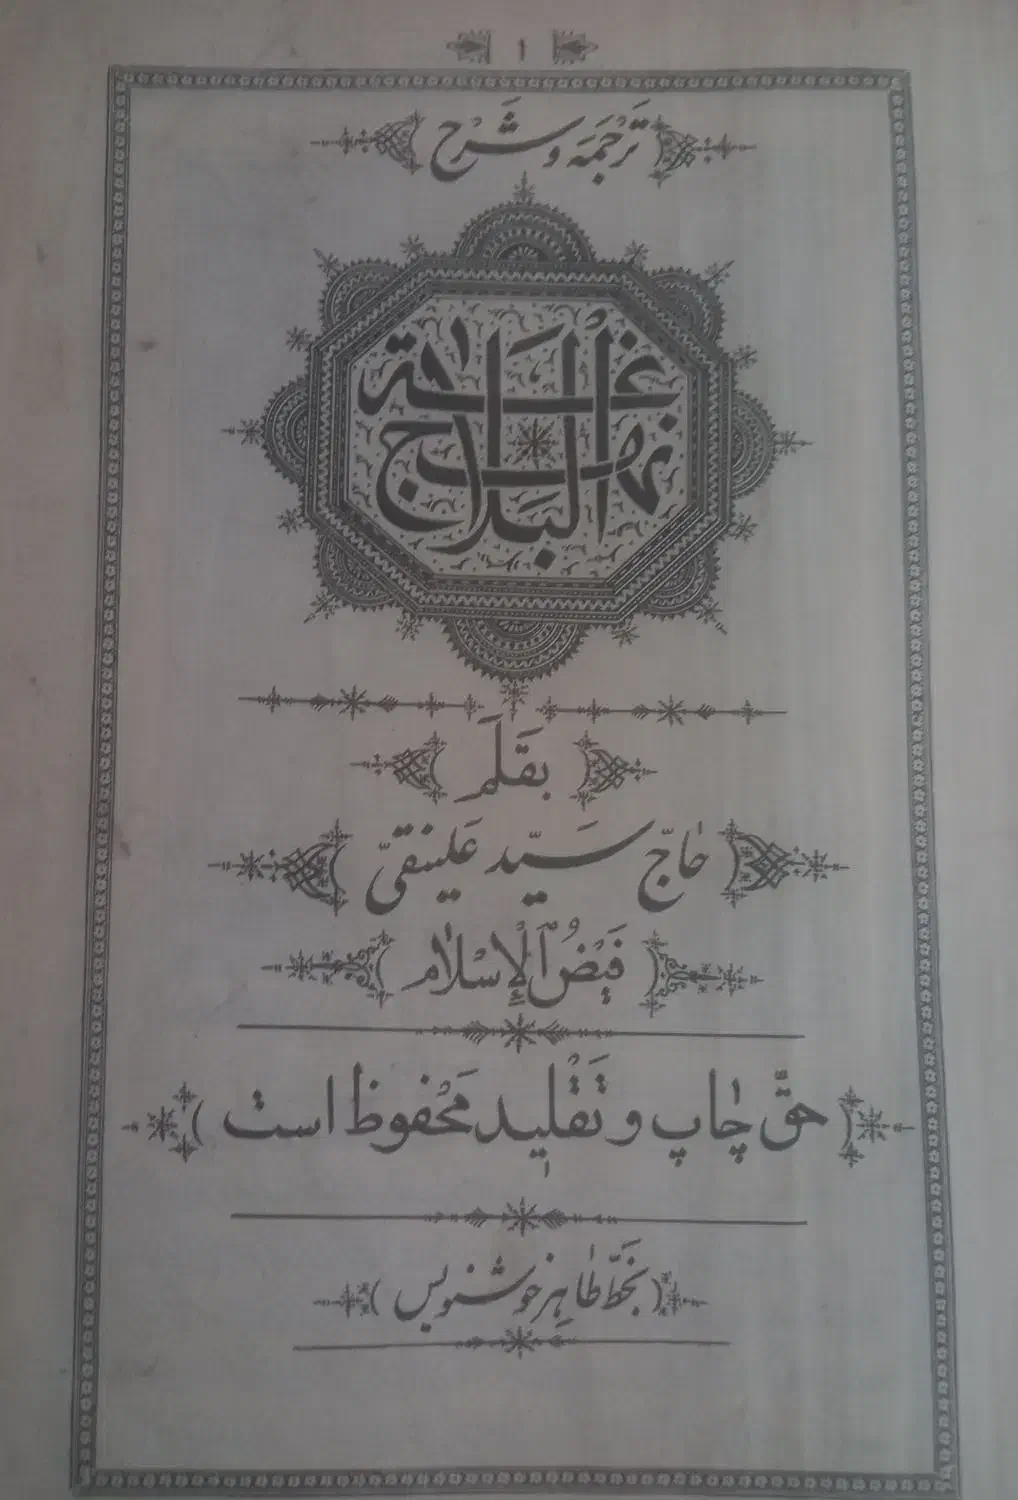 ١
تَرْجَمَه وَ شَرْح
نهج البَلاغة
بقَلَم
حٰاجّ سَیّد عَلینقیّ
فَیْضُ ٱلْإِسْلٰام
حقّ چٰاپ و تَقْلید مَحْفوظ است
بخَطّ طٰاهِر خوشنویس